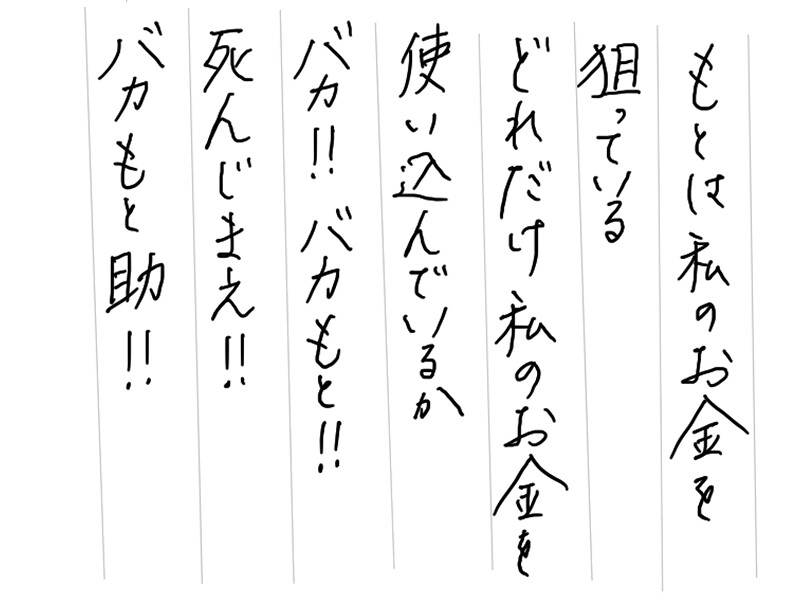 もとは私のお金を
狙っている
どれだけ私のお金を
使い込んでいるか
バカ!! バカもと!!
死んじまえ!!
バカもと助!!